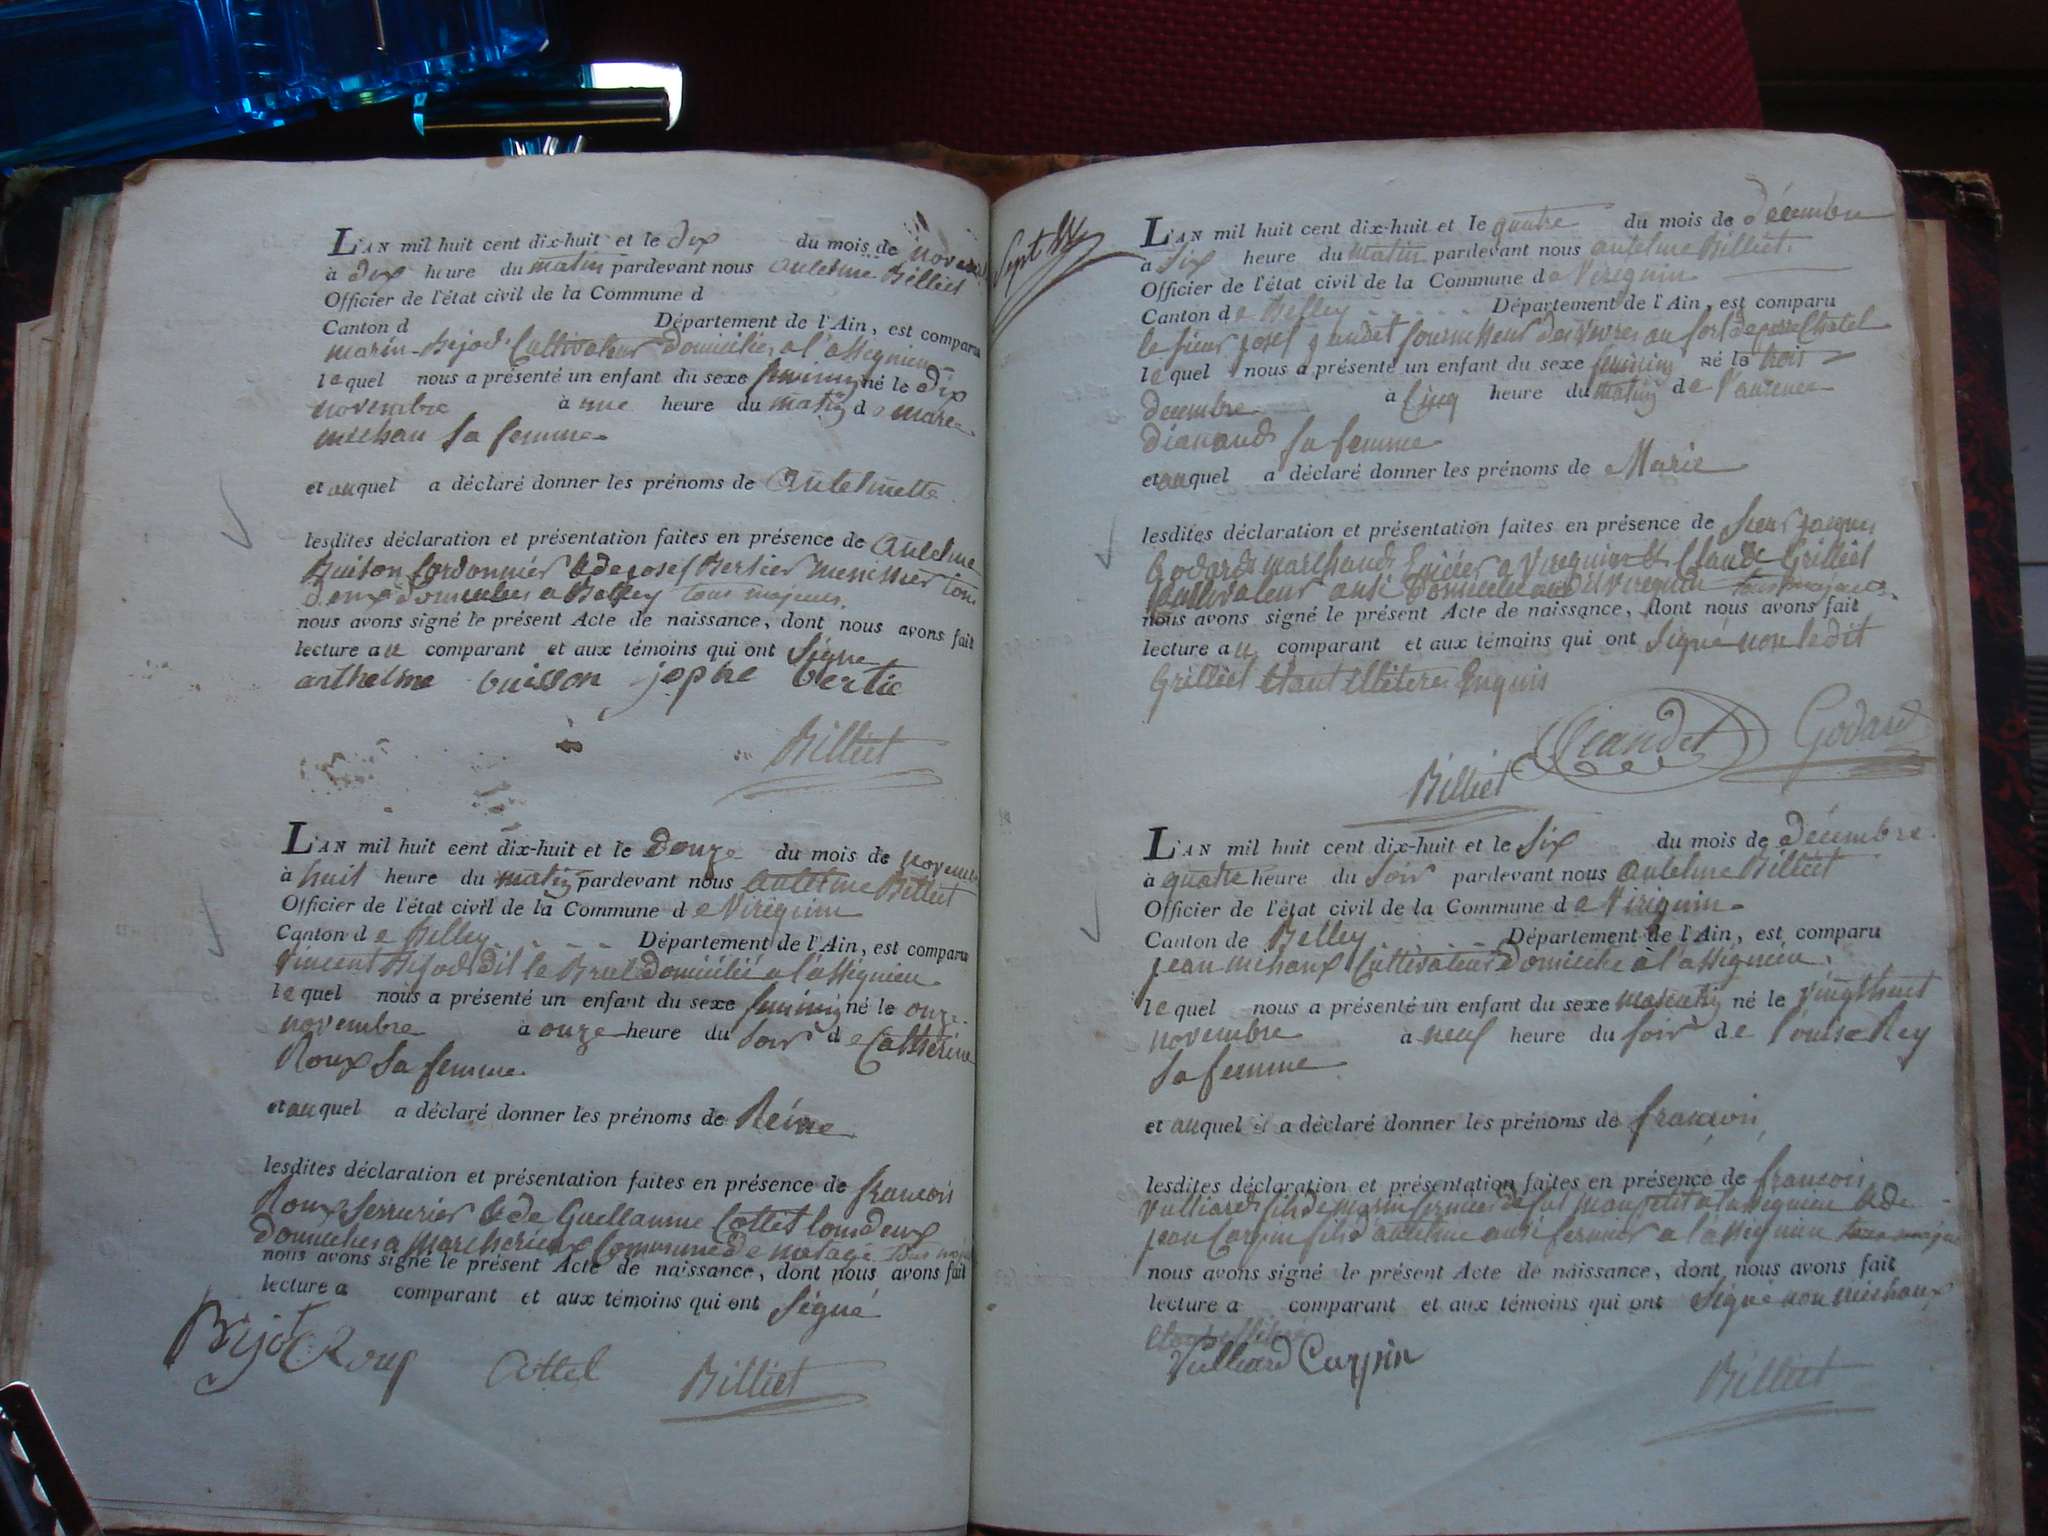 L'AN mil huit cent dix-huit et le dix du mois de novembre
à dix heure du matin pardevant nous antelme Billiet
Officier de l'état civil de la Commune d
Canton d Département de l'Ain, est comparu
marin Bejod Cultivateur domicilié a l'assignieu
lequel nous a présenté un enfant du sexe feminin né le dix
novembre à une heure du matin de marie
michau sa femme
et auquel a déclaré donner les prénoms de antelmette
lesdites déclaration et présentation faites en présence de antelme
Buison Cordonnier & de josef Bertier menisier tous
deux domicilies a Belley tous majeurs.
nous avons signé le présent Acte de naissance, dont nous avons fait
lecture au comparant et aux témoins qui ont signé
anthelme buisson jophe bertie
Billiet
L'AN mil huit cent dix-huit et le douze du mois de novembre
à huit heure du matin pardevant nous antelme Billiet
Officier de l'état civil de la Commune de Virignin
Canton de Belley Département de l'Ain, est comparu
Vincent Bejod dit le Bret domicilié a l'assignieu
lequel nous a présenté un enfant du sexe feminin né le onze
novembre à onze heure du soir de Catherine
Roux sa femme
et auquel a déclaré donner les prénoms de Réine
lesdites déclaration et présentation faites en présence de francois
Roux serrurier & de Guellaume Cottet tous deux
domicilies a Commune de tous
nous avons signé le présent Acte de naissance, dont nous avons fait
lecture a comparant et aux témoins qui ont signé
Bejot Roux Cottet Billiet
Sept
L'AN mil huit cent dix-huit et le quatre du mois de décembre
à six heure du matin pardevant nous antelme Billiet
Officier de l'état civil de la Commune de Virignin
Canton de Belley Département de l'Ain, est comparu
le sieur josef gandet fournisseur des vivres au fort de pierre Chatel
lequel nous a présenté un enfant du sexe feminin né le trois
decembre à Cinq heure du matin de
dianand sa femme
et auquel a déclaré donner les prénoms de Marie
lesdites déclaration et présentation faites en présence de sieur jacques
Godard marchand a Virignin & Claude Grilliet
Cultivateur ausi domicilié audit Virignin tous majeurs.
nous avons signé le présent Acte de naissance, dont nous avons fait
lecture au comparant et aux témoins qui ont signé non ledit
Grilliet Enquis
Gandet Godard
Billiet
L'AN mil huit cent dix-huit et le six du mois de décembre
à quatre heure du soir pardevant nous antelme Billiet
Officier de l'état civil de la Commune de Virignin
Canton de Belley Département de l'Ain, est comparu
jean michaux Cultivateur domicilié à l'assignieu
lequel nous a présenté un enfant du sexe masculin né le vingt huit
novembre à neuf heure du soir de louise Rey
sa femme
et auquel il a déclaré donner les prénoms de francois
lesdites déclaration et présentation faites en présence de francois
Vulliard fils de marin fermier a lassignieu & de
jean Carpin fils d'antelme ausi fermier a l'assignieu
nous avons signé le présent Acte de naissance, dont nous avons fait
lecture a comparant et aux témoins qui ont signé non michaux
Vulliard Carpin
Billiet